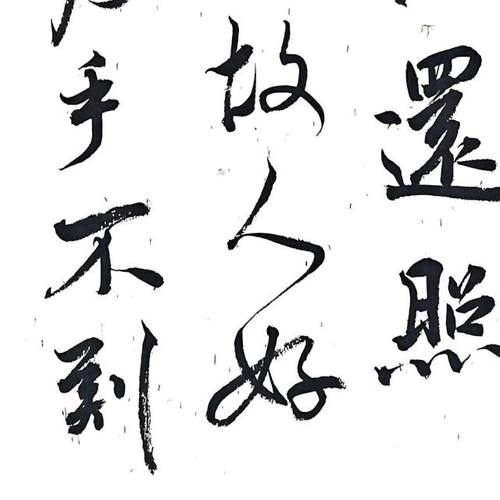 還照
故人好
手不到